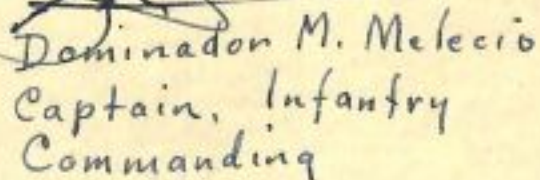 Dominador M. Melecio
Captain, Infantry
Commanding